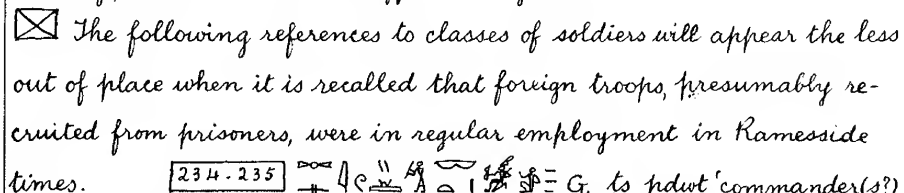 The following references to classes of soldiers will appear the less
out of place when it is recalled that foreign troops, presumably re-
cruited from prisoners, were in regular employment in Ramesside
times. 234.235 G. ts pdwt 'commander(s?)